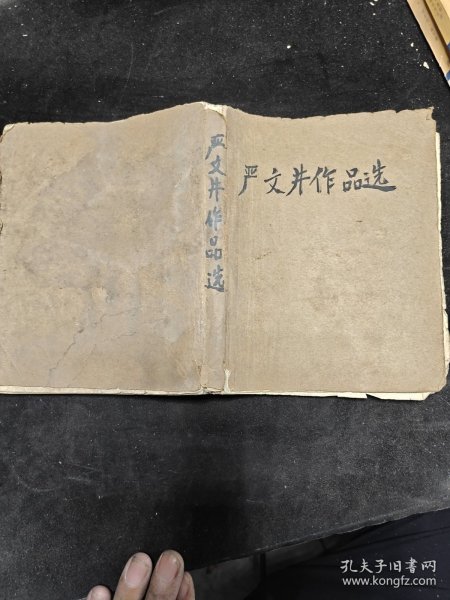 严文井作品选
严文井作品选
孔夫子旧书网
www.kongfz.com